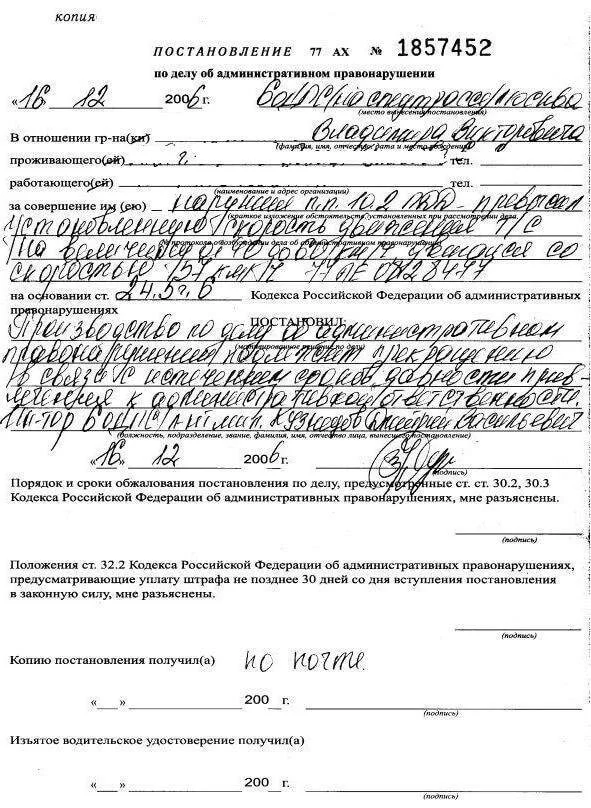 копия
ПОСТАНОВЛЕНИЕ 77 АХ № 1857452
по делу об административном правонарушении
«16» 12 2006 г. 6 о ДПС/на спецтрассе/Москва
(место вынесения постановления)
В отношении гр-на(ки) Владимира Викторовича
(фамилия, имя, отчество, дата и место рождения)
проживающего(ей) тел.
работающего(ей) тел.
(наименование и адрес организации)
за совершение им (ею) нарушил п.п. 10.2 ПДД - превысил
(краткое изложение обстоятельств, установленных при рассмотрении дела,
установленную скорость движения Т/С
№ протокола о возбуждении дела об административном правонарушении)
на величину от до двигался со
скоростью км/ч 77
на основании ст. 24.5 г. 6 Кодекса Российской Федерации об административных
правонарушениях
ПОСТАНОВИЛ:
Производство по делу об административном
(мотивированное решение по делу)
правонарушении подлежит прекращению
в связи с истечением сроков давности прив-
лечения к административной ответственности.
Ин-тор 6 о ДПС Кузнецов Дмитрий Васильевич
(должность, подразделение, звание, фамилия, имя, отчество лица, вынесшего постановление)
«16» 12 2006 г.
(подпись)
Порядок и сроки обжалования постановления по делу, предусмотренные ст. ст. 30.2, 30.3
Кодекса Российской Федерации об административных правонарушениях, мне разъяснены.
(подпись)
Положения ст. 32.2 Кодекса Российской Федерации об административных правонарушениях,
предусматривающие уплату штрафа не позднее 30 дней со дня вступления постановления
в законную силу, мне разъяснены.
(подпись)
Копию постановления получил(а) по почте
«__» 200_ г.
(подпись)
Изъятое водительское удостоверение получил(а)
«__» 200_ г.
(подпись)